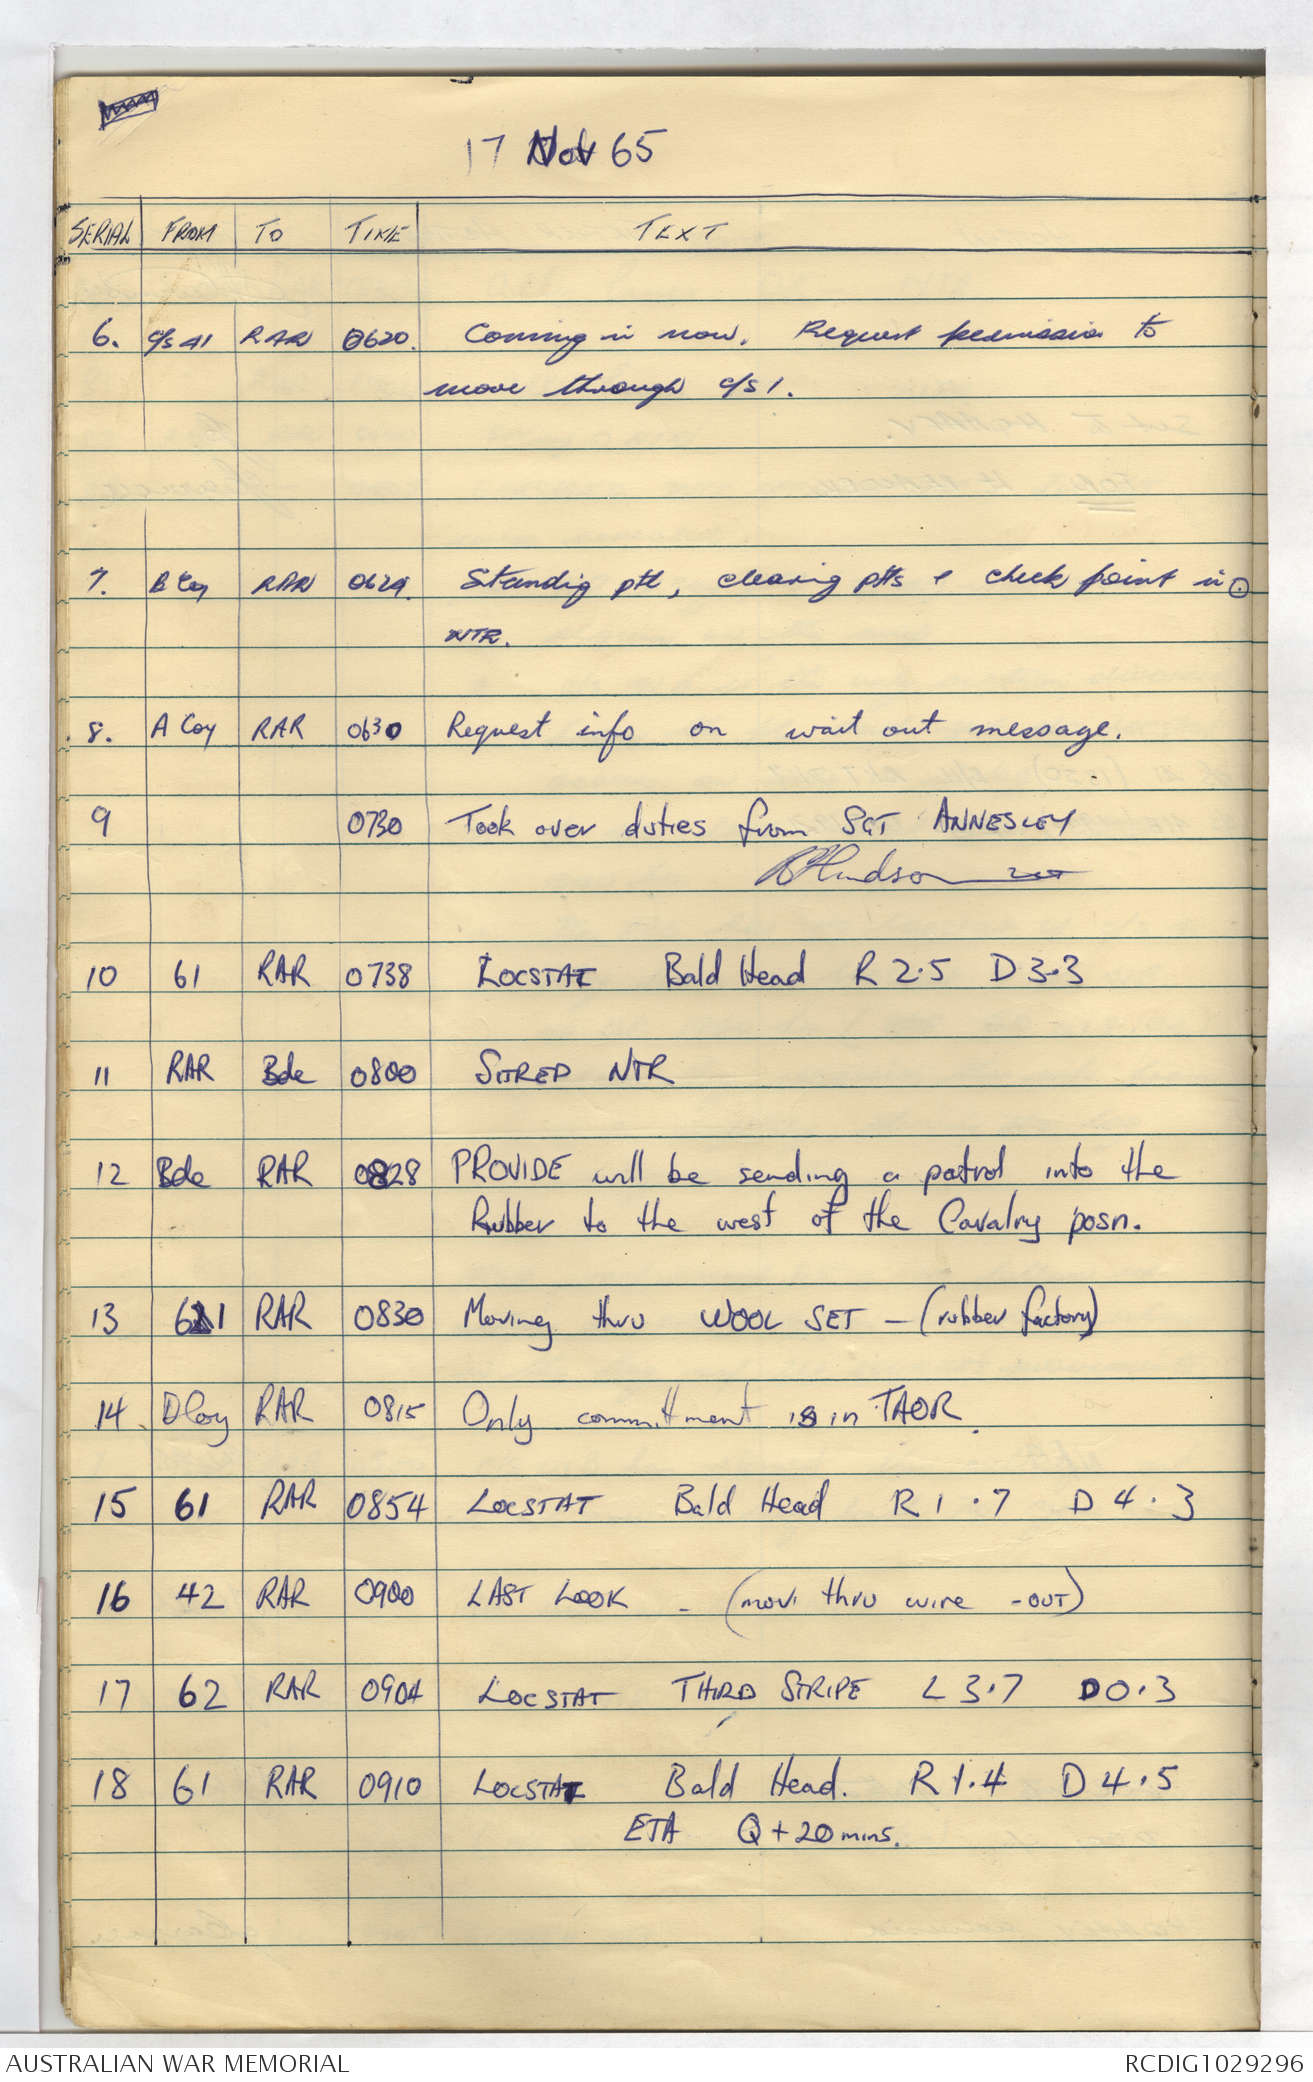 17 Nov 65
SERIAL FROM TO TIME TEXT
6. c/s 41 RAR 0620. Coming in now. Request permission to
move through c/s 1.
7. B Coy RAR 0629. Standing ptl, clearing ptls & check point in.
NTR.
8. A Coy RAR 0630 Request info on wait out message.
9 0730 Took over duties from SGT ANNESLEY
Hudson
10 61 RAR 0738 LOCSTAT Bald Head R 2.5 D 3.3
11 RAR Bde 0800 SITREP NTR
12 Bde RAR 0828 PROVIDE will be sending a patrol into the
Rubber to the west of the Cavalry posn.
13 61 RAR 0830 Moving thru WOOL SET - (rubber factory)
14 D Coy RAR 0815 Only committment is in TAOR.
15 61 RAR 0854 LOCSTAT Bald Head R 1.7 D 4.3
16 42 RAR 0900 LAST LOOK - (movi thru wire - OUT)
17 62 RAR 0904 LOCSTAT THIRD STRIPE L 3.7 D 0.3
18 61 RAR 0910 LOCSTAT Bald Head. R 1.4 D 4.5
ETA Q + 20 mins.
AUSTRALIAN WAR MEMORIAL RCDIG1029296